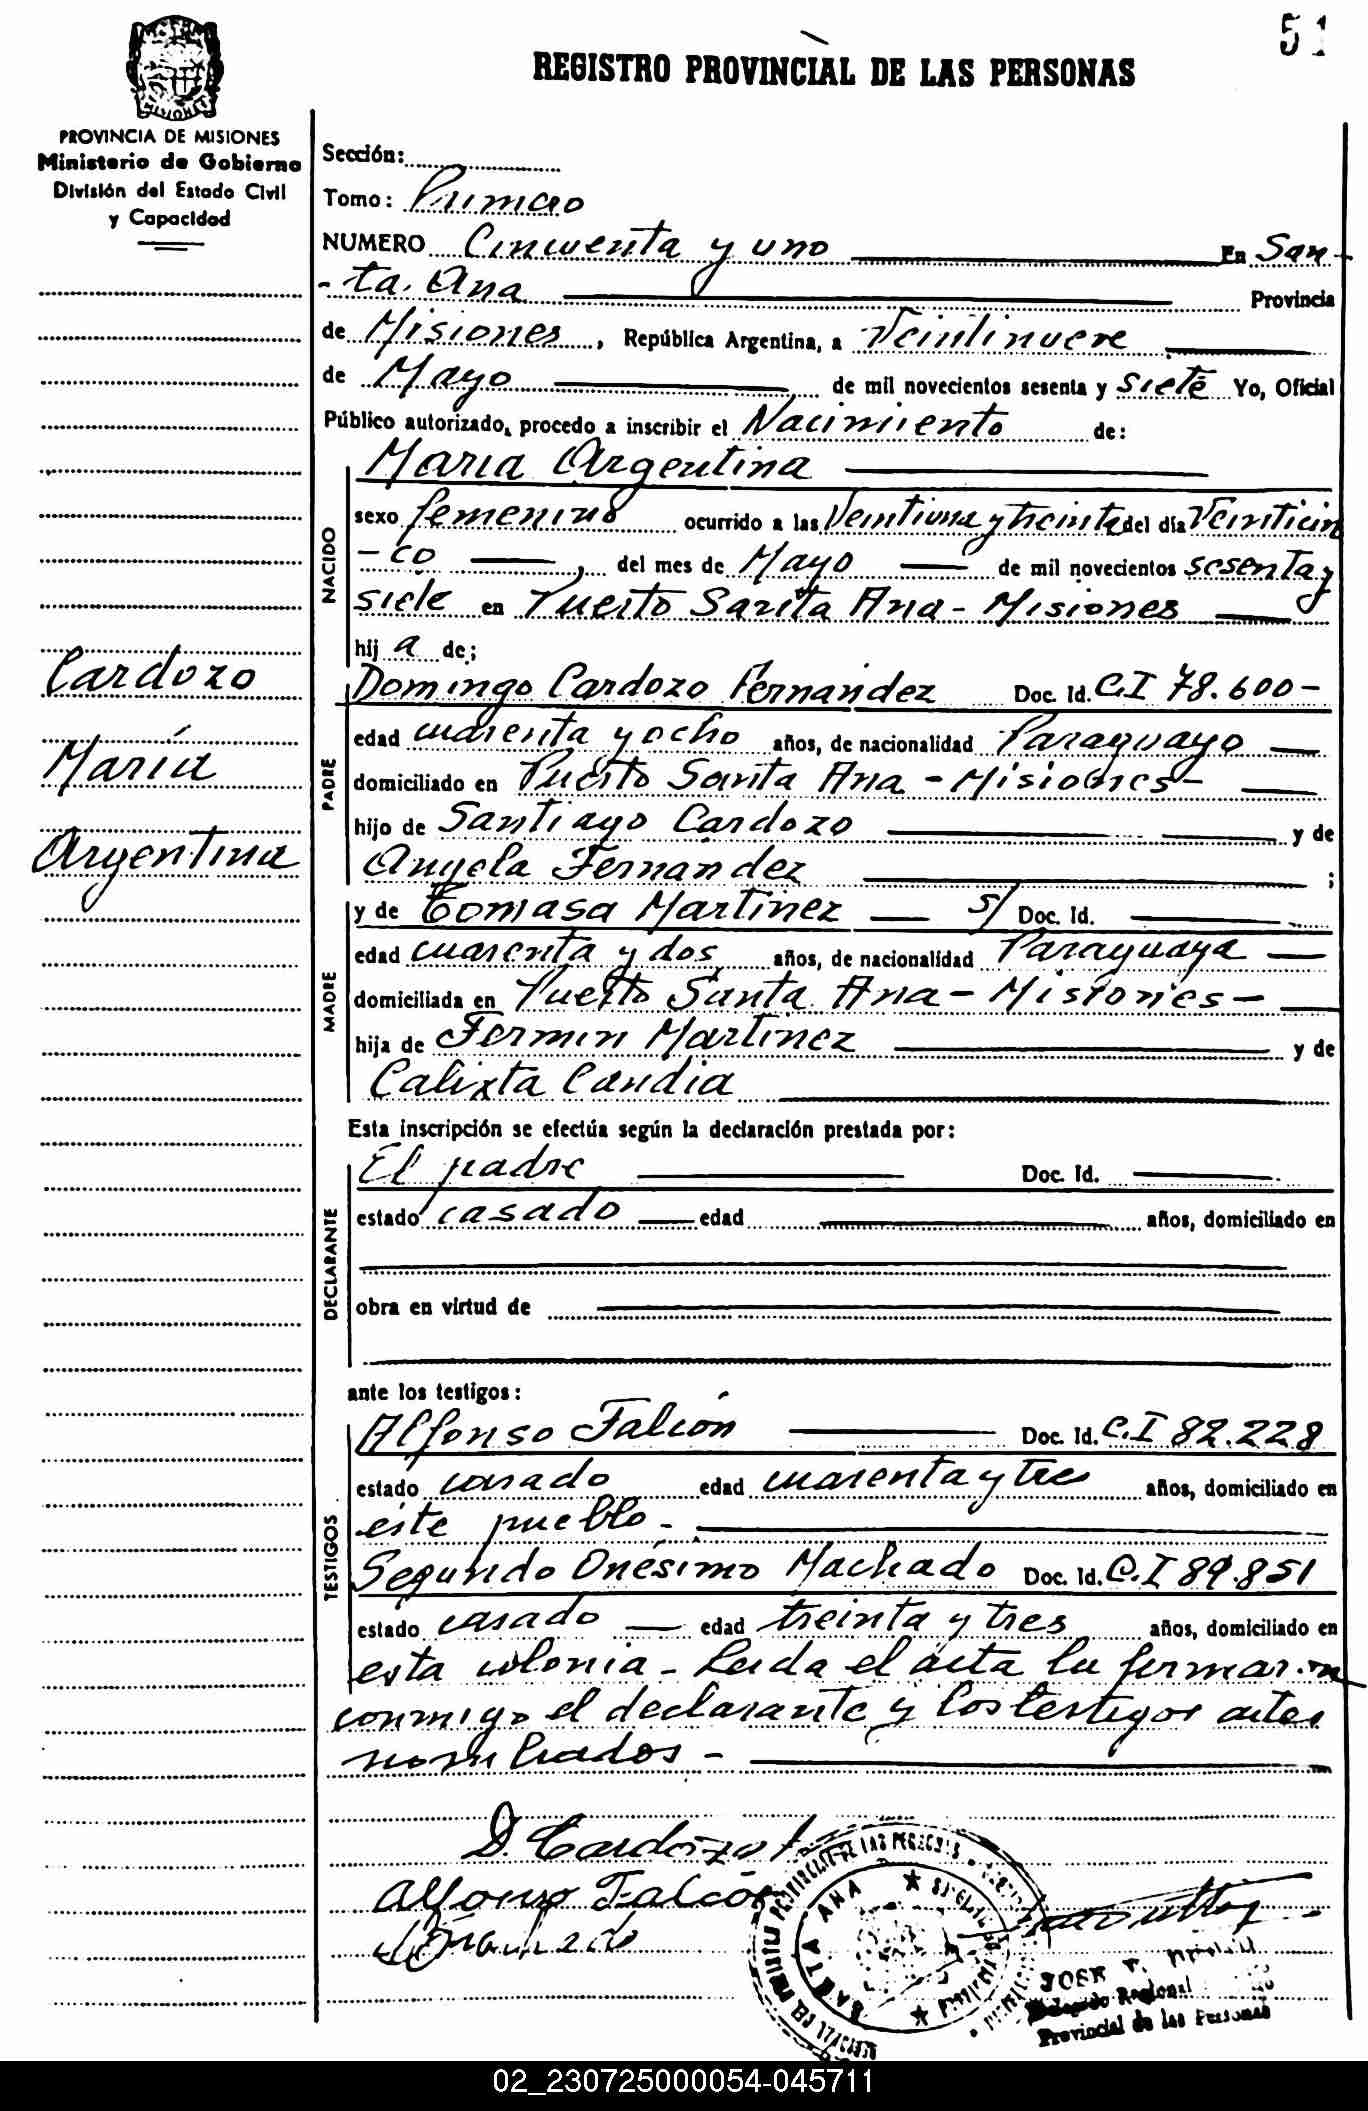 51
REGISTRO PROVINCIAL DE LAS PERSONAS
PROVINCIA DE MISIONES
Ministerio de Gobierno
División del Estado Civil
y Capacidad
Sección:
Tomo: Primero
NUMERO Cincuenta y uno En San-
-ta. Ana Provincia
de Misiones, República Argentina, a Veintinueve
de Mayo de mil novecientos sesenta y siete Yo, Oficial
Público autorizado, procedo a inscribir el Nacimiento de:
Maria Argentina
NACIDO
sexo femenino ocurrido a las Veintiuna y treinta del día Veinticin
-co, del mes de Mayo de mil novecientos sesenta y
siete en Puerto Santa Ana - Misiones
hij a de;
Cardozo
María
Argentina
PADRE
Domingo Cardozo Fernandez Doc. Id. C.I 78.600-
edad cuarenta y ocho años, de nacionalidad Paraguayo
domiciliado en Puerto Santa Ana - Misiones-
hijo de Santiago Cardozo y de
Angela Fernandez ;
MADRE
y de Tomasa Martinez s/ Doc. Id.
edad cuarenta y dos años, de nacionalidad Paraguaya
domiciliada en Puerto Santa Ana - Misiones -
hija de Fermin Martinez y de
Calixta Candia
Esta inscripción se efectúa según la declaración prestada por:
DECLARANTE
El padre Doc. Id.
estado casado edad años, domiciliado en
obra en virtud de
ante los testigos:
TESTIGOS
Alfonso Falcón Doc. Id. C.I 82.228
estado casado edad cuarenta y tres años, domiciliado en
este pueblo-
Segundo Onésimo Machado Doc. Id. C.I 89.851
estado casado edad treinta y tres años, domiciliado en
esta colonia - Leida el acta la firmaron
conmigo el declarante y los testigos antes
nombrados -
D. Cardozo f
Alfonso Falcón
REGISTRO PROVINCIAL DE LAS PERSONAS
SANTA ANA
JOSE
Delegado Regional
Provincial de las Personas
02_230725000054-045711